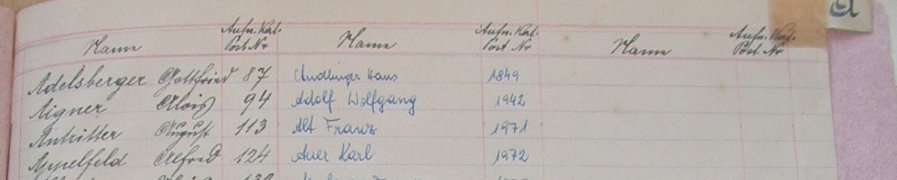 A
Aufn. Kat. Aufn. Kat. Aufn. Kat.
Name Post Nr Name Post Nr Name Post Nr
Adelsberger Gottfried 87 Hans 1849
Aigner Alois 94 Adolf Wolfgang 1942
Antritter August 113 Alt Franz 1971
Appelfeld Alfred 124 Auer Karl 1972